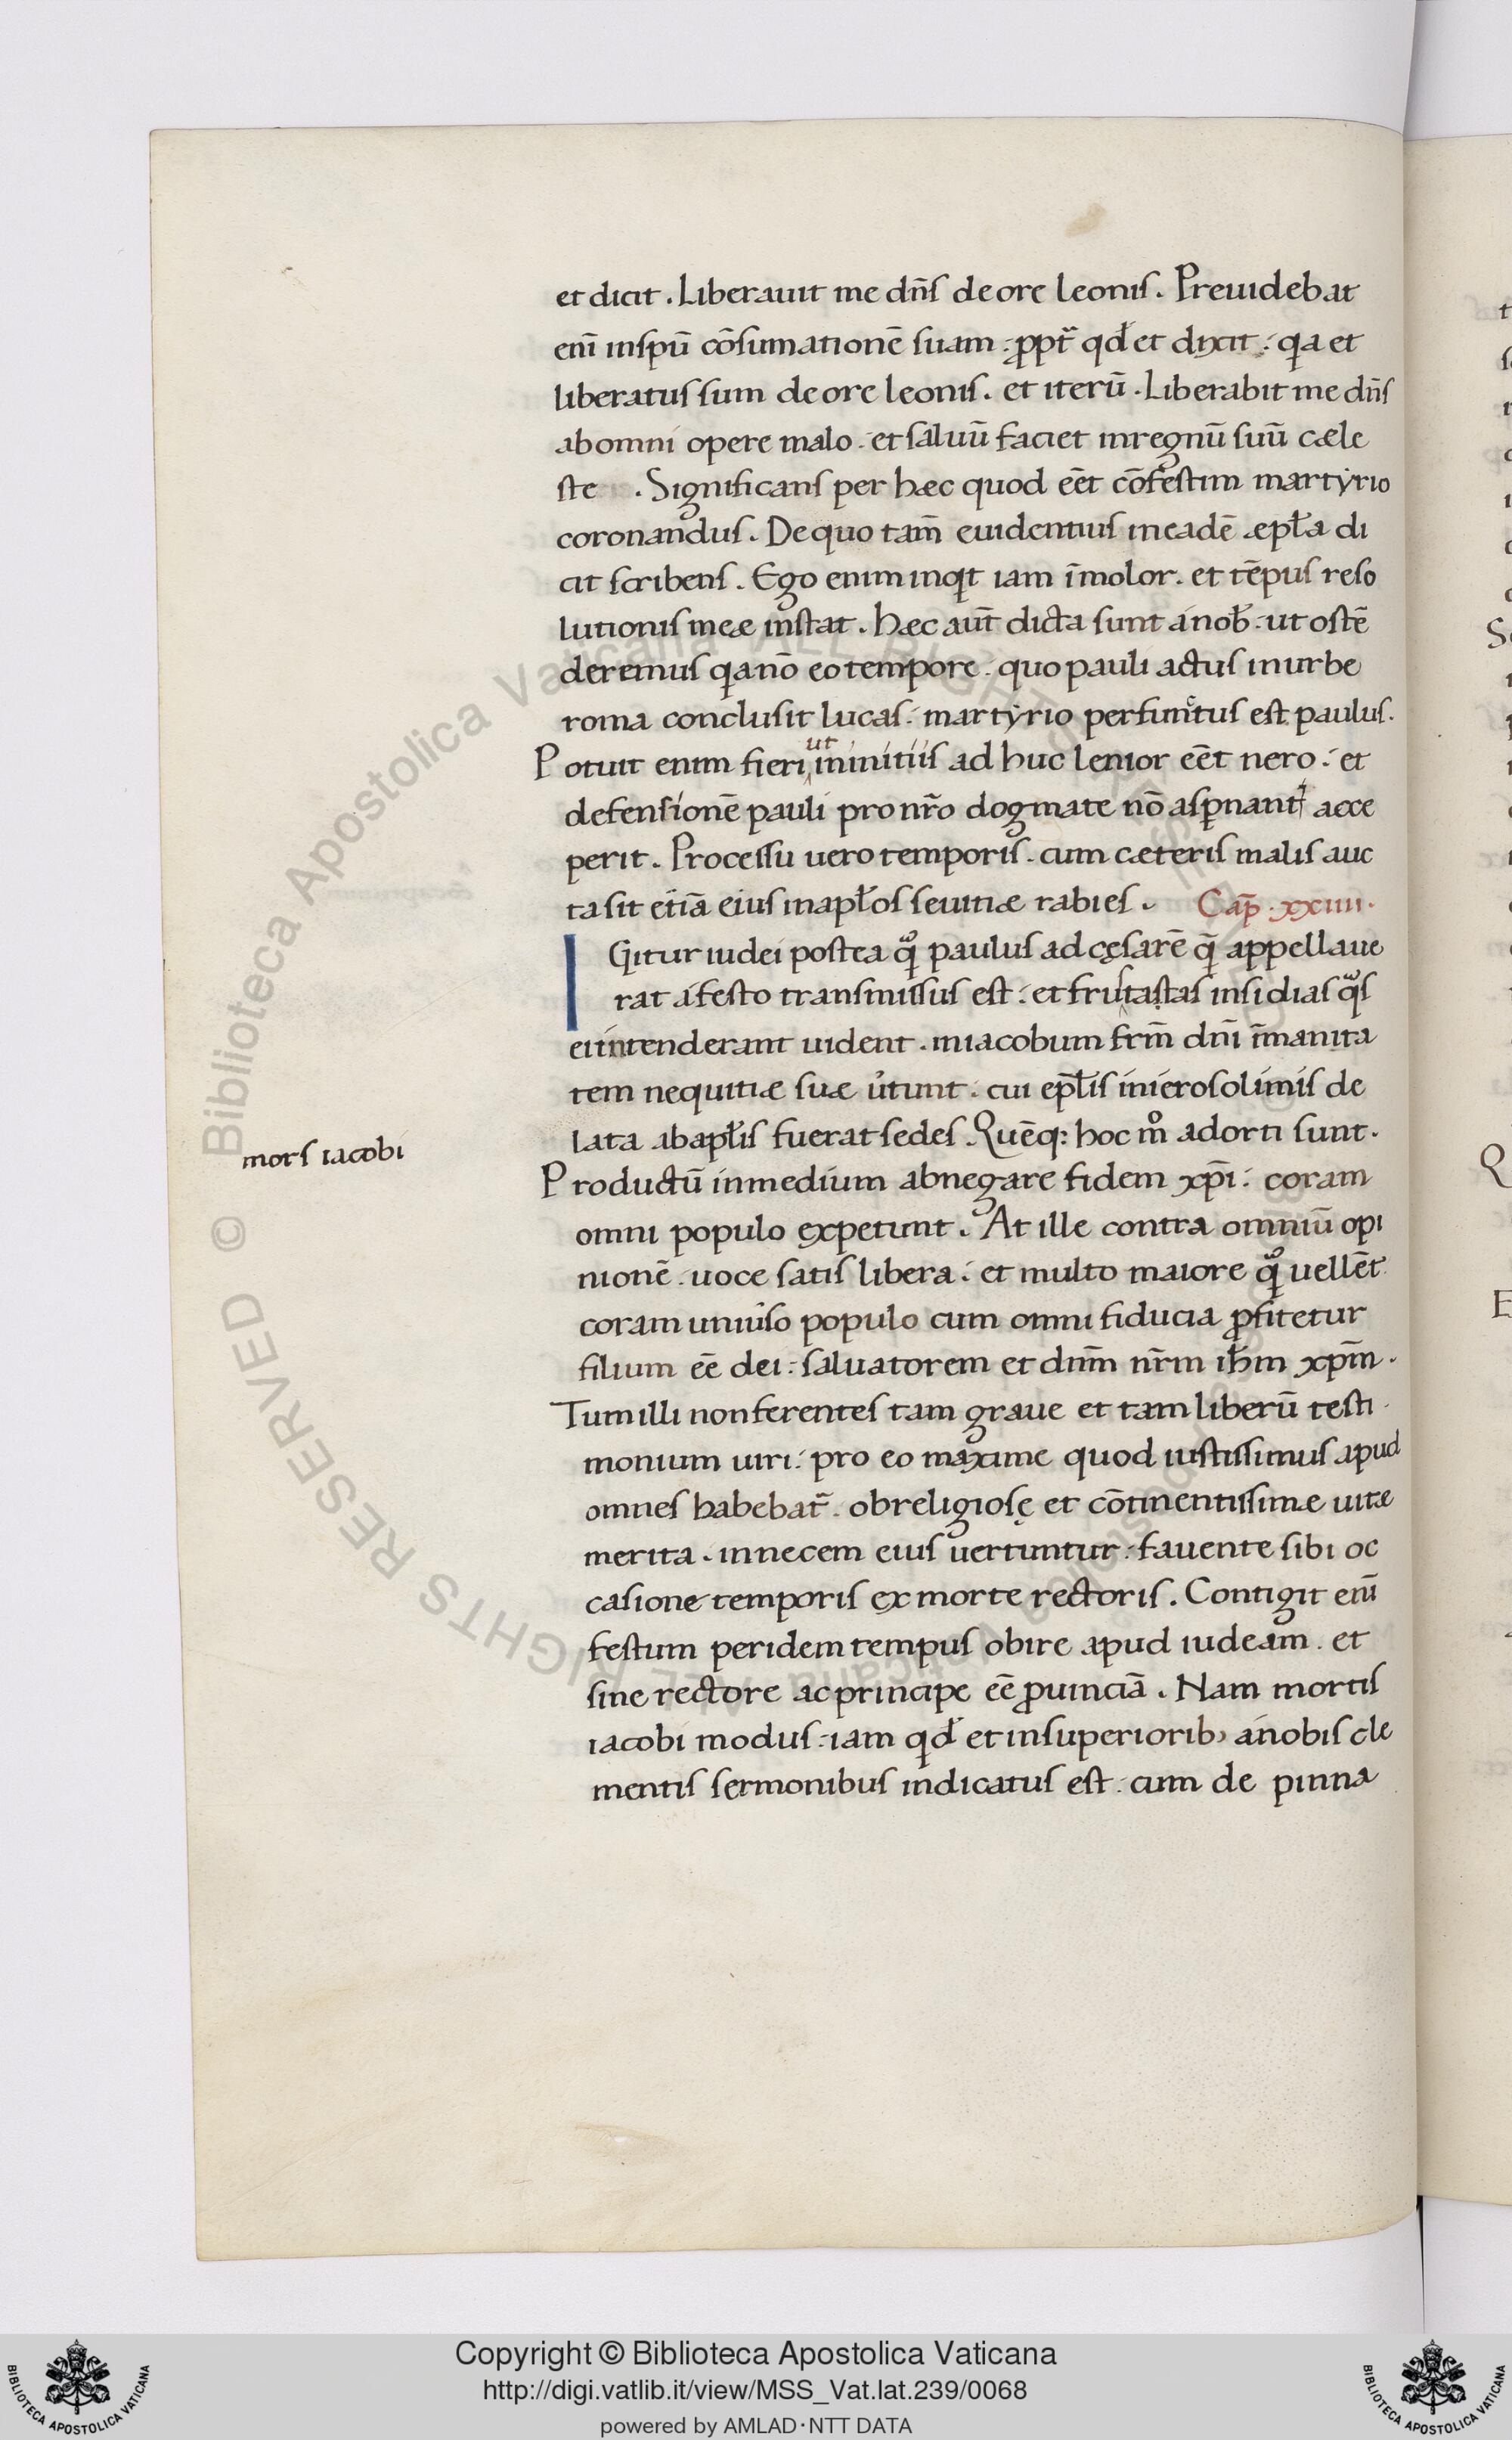 et dicit . Liberauit me dn̄s de ore leonis . Preuidebat
eni̅ inspū cōsumationē suam : ꝓpt̄ qđ et dixit : qa et
liberatus sum de ore leonis . et iterū . Liberabit me dn̄s
ab omni opere malo . et saluū faciet inregnū suū cæle
ste . Significans per hæc quod eēt cōfestim martyrio
coronandus . De quo tam̄ euidentius in eadē æpła di
cit scribens . Ego enim inqt iam īmolor . et tēpus reso
lutionis meæ instat . hæc aut̄ dicta sunt a nob̄ : ut ostē
deremus qa nō eo tempore . quo pauli actus in urbe
roma conclusit lucas : martyrio perfunctus est paulus .
Potuit enim fieri ut in initiis ad huc lenior eēt nero : et
defensionē pauli pro nr̄o dogmate nō asꝑnant̃ acce
perit . Processu uero temporis . cum cæteris malis auc
ta sit etiā eius in apłos seuitiæ rabies . Cap̄ . xxiiii .
IGitur iudei postea qͦ paulus ad cęsarē q̄ appellaue
rat a festo transmissus est : et frustatas insidias qͦs
ei intenderant uident . in iacobum frm̄ dn̄i īmanita
tem nequitiæ suæ ůtunt : cui ep̄łis in ierosolimis de
lata ab apłis fuerat sedes . Quēq: hoc mͦ adorti sunt .
Productū in medium abnegare fidem xp̄i : coram
omni populo expetunt . At ille contra omniū opi
nionē . uoce satis libera : et multo maiore qͦ uellēt
coram uniůso populo cum omni fiducia ꝓfitetur
filium eē dei : saluatorem et dnm̄ nr̄m ih̄m xp̄m .
Tum illi non ferentes tam graue et tam liberū testi
monium uiri : pro eo maxime quod iustissimus apud
omnes habebat̃ . ob religiosę et cōtinentissimæ uitæ
merita . in necem eius uertuntur : fauente sibi oc
casione temporis ex morte rectoris . Contigit eni̅
festum per idem tempus obire apud iudeam . et
sine rectore ac principe eē ꝓuinciā . Nam mortis
iacobi modus : iam qđ et in superiorib; a nobis cle
mentis sermonibus indicatus est : cum de pinna
mors iacobi
© Biblioteca Apostolica Vaticana ALL RIGHTS RESERVED
Copyright © Biblioteca Apostolica Vaticana
http://digi.vatlib.it/view/MSS_Vat.lat.239/0068
powered by AMLAD·NTT DATA
BIBLIOTECA APOSTOLICA VATICANA
BIBLIOTECA APOSTOLICA VATICANA